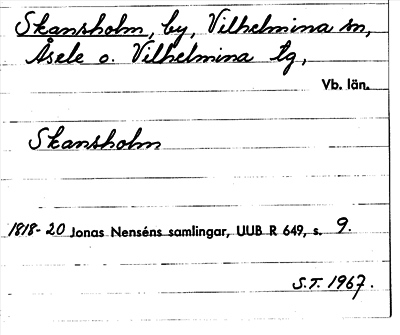 Skansholm, by, Vilhelmina sn,
Åsele o. Vilhelmina tg,
Vb. län.
Skansholm
1818-20 Jonas Nenséns samlingar, UUB R 649, s. 9.
S.T. 1967.